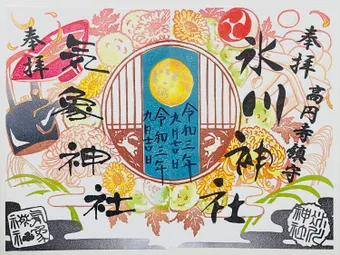 奉拝
高円寺鎮守
氷川神社
令和三年
九月廿日
令和三年
九月廿日
奉拝
気象神社